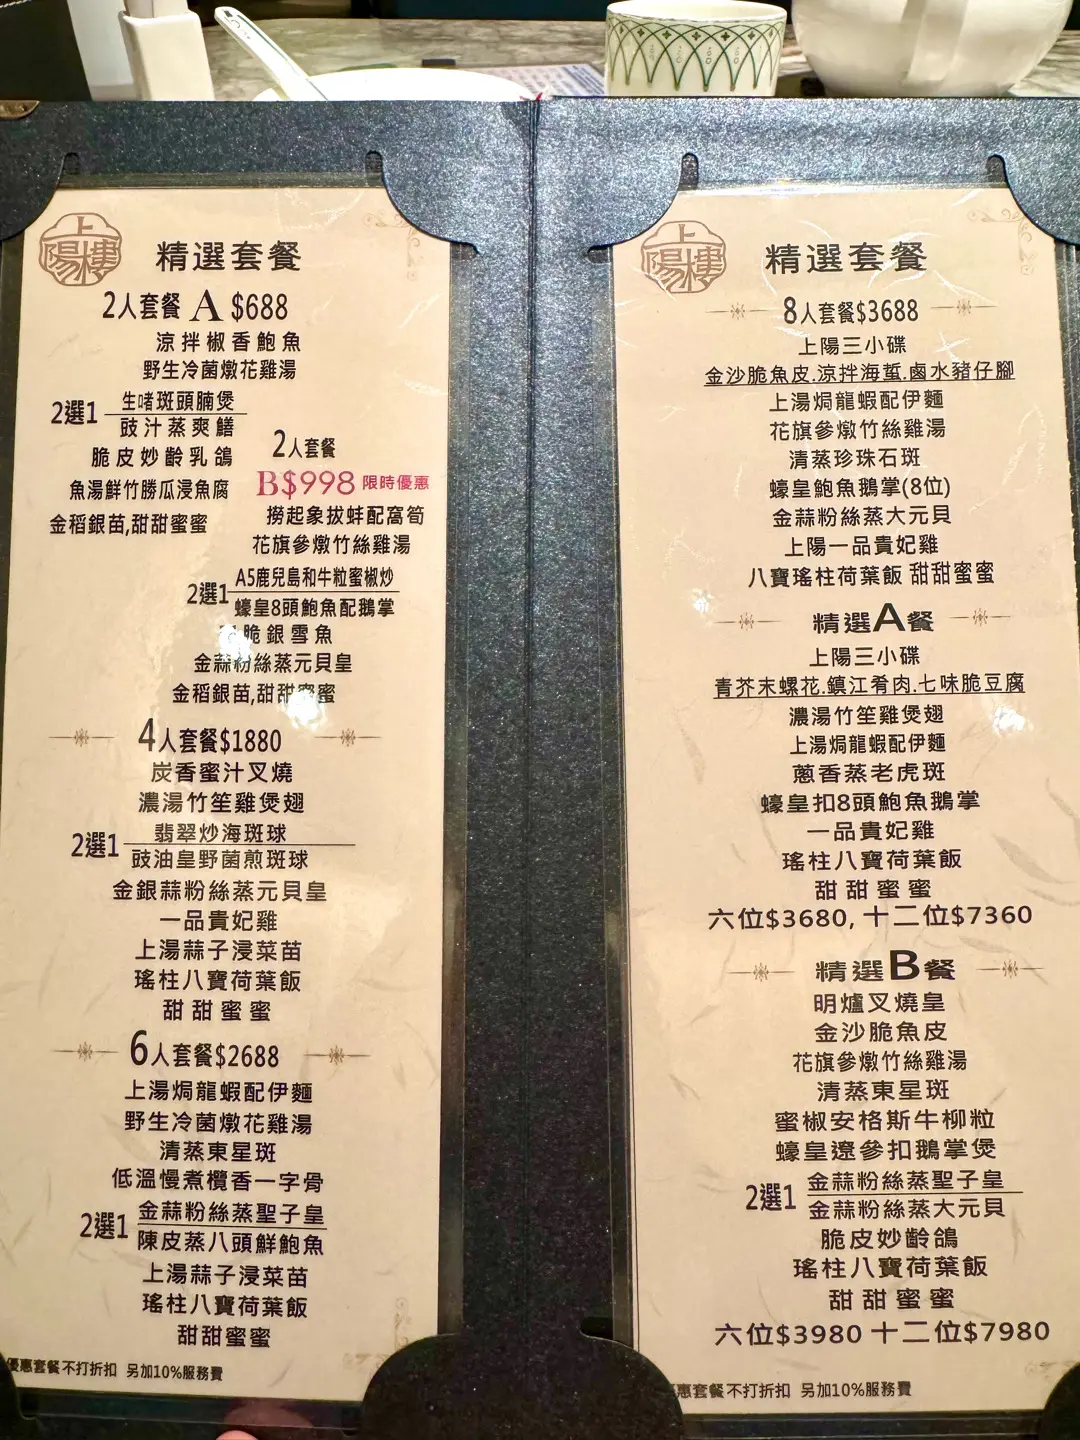 上陽樓
精選套餐
2人套餐 A $688
涼拌椒香鮑魚
野生冷菌燉花雞湯
2選1
生啫斑頭腩煲
豉汁蒸爽鱔
脆皮妙齡乳鴿
魚湯鮮竹勝瓜浸魚腐
金稻銀苗,甜甜蜜蜜
2人套餐
B$998 限時優惠
撈起象拔蚌配窩筍
花旗參燉竹絲雞湯
2選1
A5鹿兒島和牛粒蜜椒炒
蠔皇8頭鮑魚配鵝掌
脆銀雪魚
金蒜粉絲蒸元貝皇
金稻銀苗,甜甜蜜蜜
4人套餐$1880
炭香蜜汁叉燒
濃湯竹笙雞煲翅
2選1
翡翠炒海斑球
豉油皇野菌煎斑球
金銀蒜粉絲蒸元貝皇
一品貴妃雞
上湯蒜子浸菜苗
瑤柱八寶荷葉飯
甜甜蜜蜜
6人套餐$2688
上湯焗龍蝦配伊麵
野生冷菌燉花雞湯
清蒸東星斑
低溫慢煮欖香一字骨
2選1
金蒜粉絲蒸聖子皇
陳皮蒸八頭鮮鮑魚
上湯蒜子浸菜苗
瑤柱八寶荷葉飯
甜甜蜜蜜
優惠套餐不打折扣 另加10%服務費
上陽樓
精選套餐
8人套餐$3688
上陽三小碟
金沙脆魚皮.涼拌海蜇.鹵水豬仔腳
上湯焗龍蝦配伊麵
花旗參燉竹絲雞湯
清蒸珍珠石斑
蠔皇鮑魚鵝掌(8位)
金蒜粉絲蒸大元貝
上陽一品貴妃雞
八寶瑤柱荷葉飯 甜甜蜜蜜
精選A餐
上陽三小碟
青芥末螺花.鎮江肴肉.七味脆豆腐
濃湯竹笙雞煲翅
上湯焗龍蝦配伊麵
蔥香蒸老虎斑
蠔皇扣8頭鮑魚鵝掌
一品貴妃雞
瑤柱八寶荷葉飯
甜甜蜜蜜
六位$3680, 十二位$7360
精選B餐
明爐叉燒皇
金沙脆魚皮
花旗參燉竹絲雞湯
清蒸東星斑
蜜椒安格斯牛柳粒
蠔皇遼參扣鵝掌煲
2選1
金蒜粉絲蒸聖子皇
金蒜粉絲蒸大元貝
脆皮妙齡鴿
瑤柱八寶荷葉飯
甜甜蜜蜜
六位$3980 十二位$7980
惠套餐不打折扣 另加10%服務費